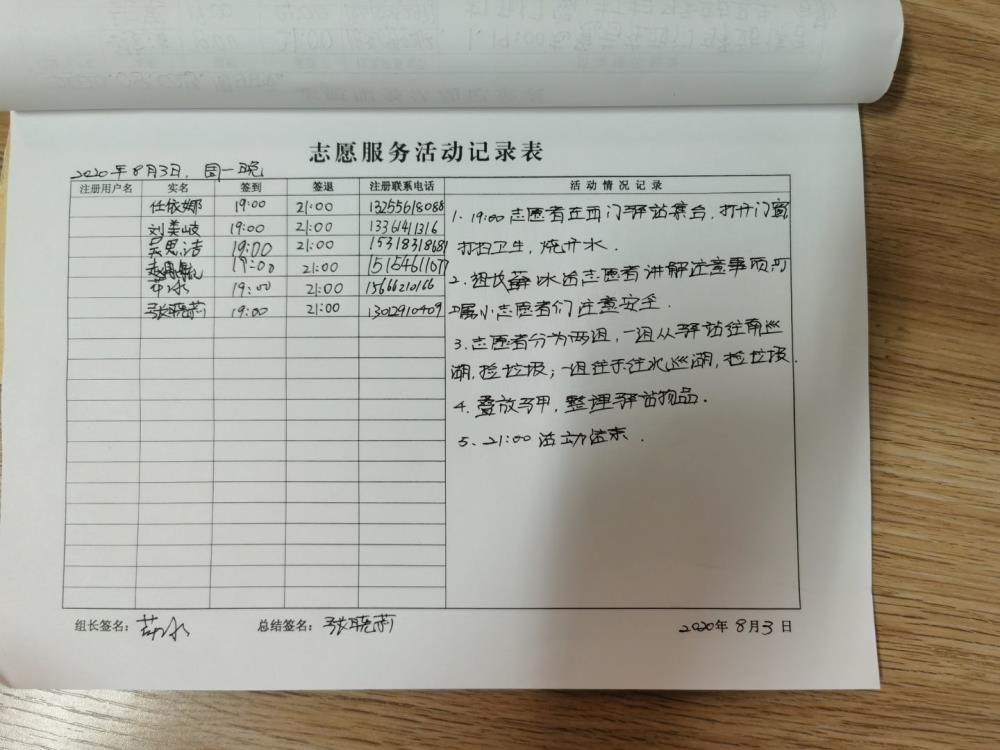 志愿服务活动记录表
2020年8月3日，周一晚
注册用户名 实名 签到 签退 注册联系电话 活动情况记录
任依娜 19:00 21:00 13255618088
刘美岐 19:00 21:00 1336141316
吴思洁 19:00 21:00 15318318681
19:00 21:00 15154611077
19:00 21:00 15666210166
张晓莉 19:00 21:00 13012910409
1. 19:00志愿者在西门驿站集合，打开门窗
打扫卫生，烧开水.
2. 组长薛冰给志愿者讲解注意事项，叮
嘱小志愿者们注意安全.
3. 志愿者分为两组，一组从驿站往南巡
湖，捡垃圾；一组往北巡湖，捡垃圾.
4. 叠放马甲，整理驿站物品.
5、21:00 活动结束.
组长签名： 总结签名：张晓莉 2020年8月3日